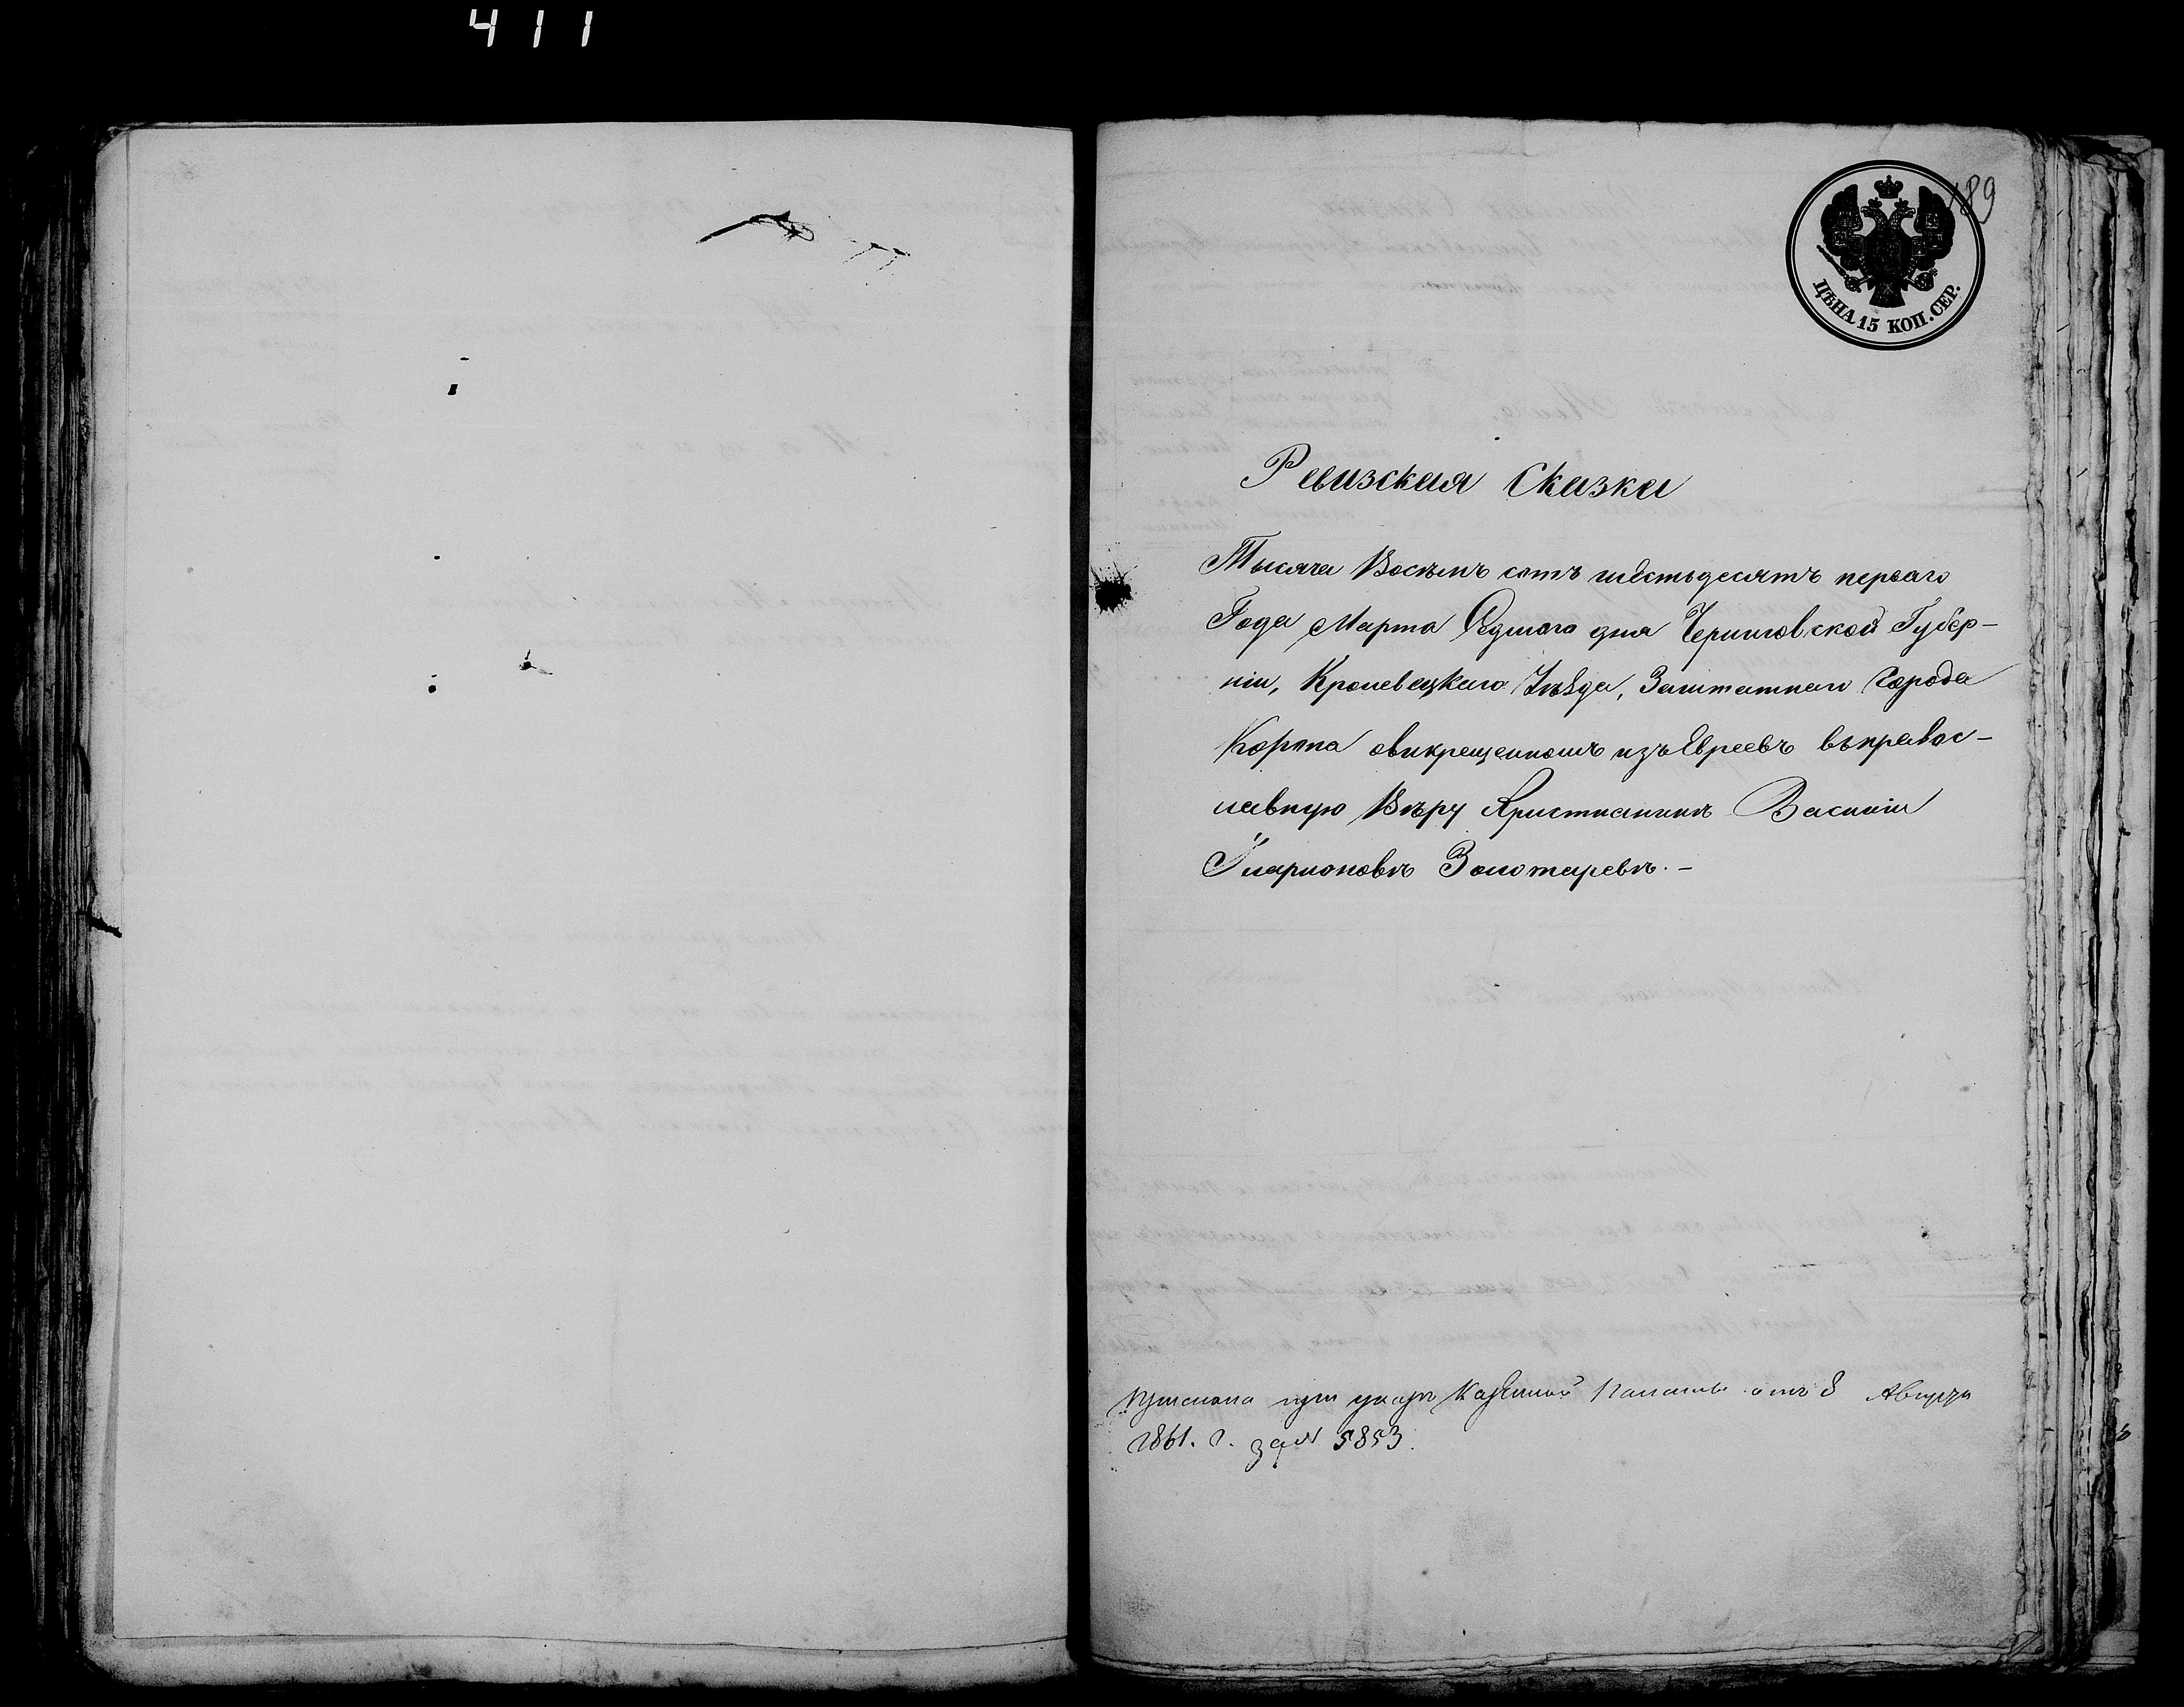 411
189
ЦѢНА 15 КОП. СЕР.
Ревизская Сказка
Тысяча Восемь сотъ шестьдесятъ перваго
Года Марта Седмого дня Черниговской Губер-
ніи, Кролевецкаго Уѣзда, Заштатнаго Города
Коропа овикрещенномъ изъ Евреевъ въ правос-
лавную Вѣру Християнинъ Василіи
Іларионовъ Золотаревъ. -
при указѣ Казенной Палаты отъ 8 Августа
1861. г. за № 5853.